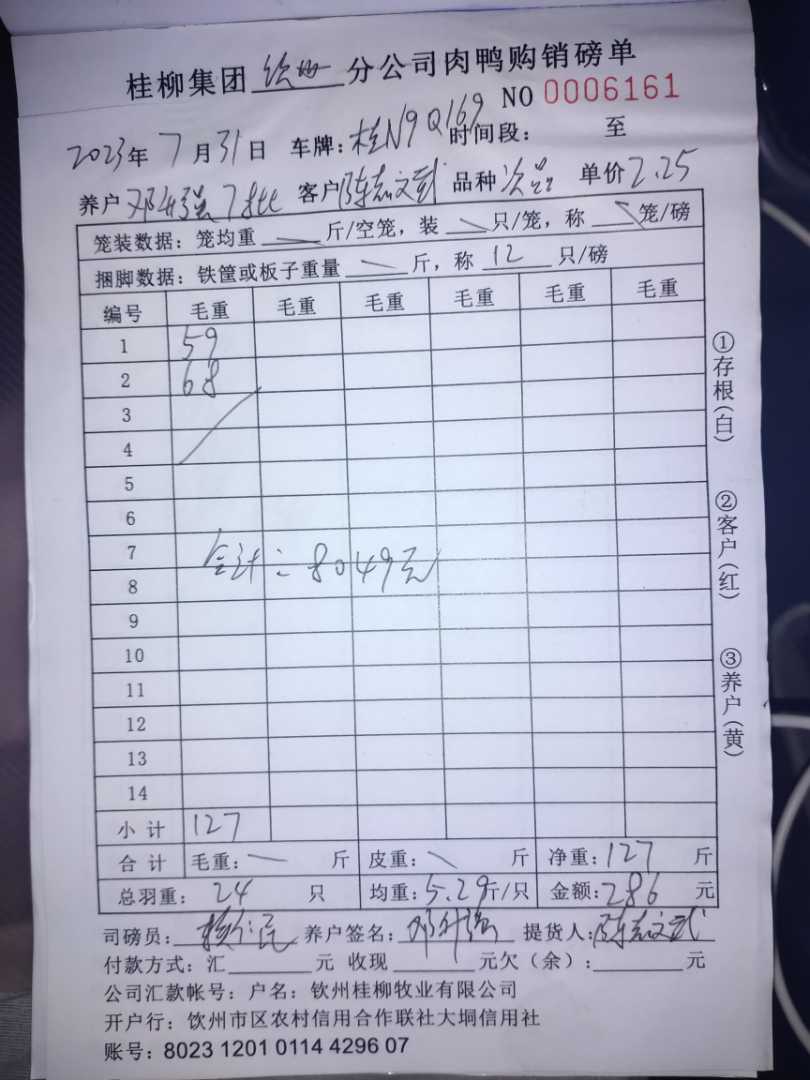 桂柳集团 钦州 分公司肉鸭购销磅单
NO 0006161
2023年 7月31日 车牌:桂N9Q169 时间段: 至
养户 邓升强7批 客户 陈志文武 品种 次品 单价 2.25
笼装数据:笼均重 斤/空笼,装 只/笼,称 笼/磅
捆脚数据:铁筐或板子重量 斤,称 12 只/磅
编号 毛重 毛重 毛重 毛重 毛重 毛重
1 59
2 68
3
4
5
6
7
合计:8049元
8
9
10
11
12
13
14
小计 127
合计 毛重: 斤 皮重: 斤 净重:127 斤
总羽重: 24 只 均重:5.29斤/只 金额:286 元
司磅员: 养户签名:邓升强 提货人:陈志文武
付款方式:汇 元 收现 元欠(余): 元
公司汇款帐号:户名:钦州桂柳牧业有限公司
开户行:饮州市区农村信用合作联社大垌信用社
账号:8023 1201 0114 4296 07
①存根(白)
②客户(红)
③养户(黄)